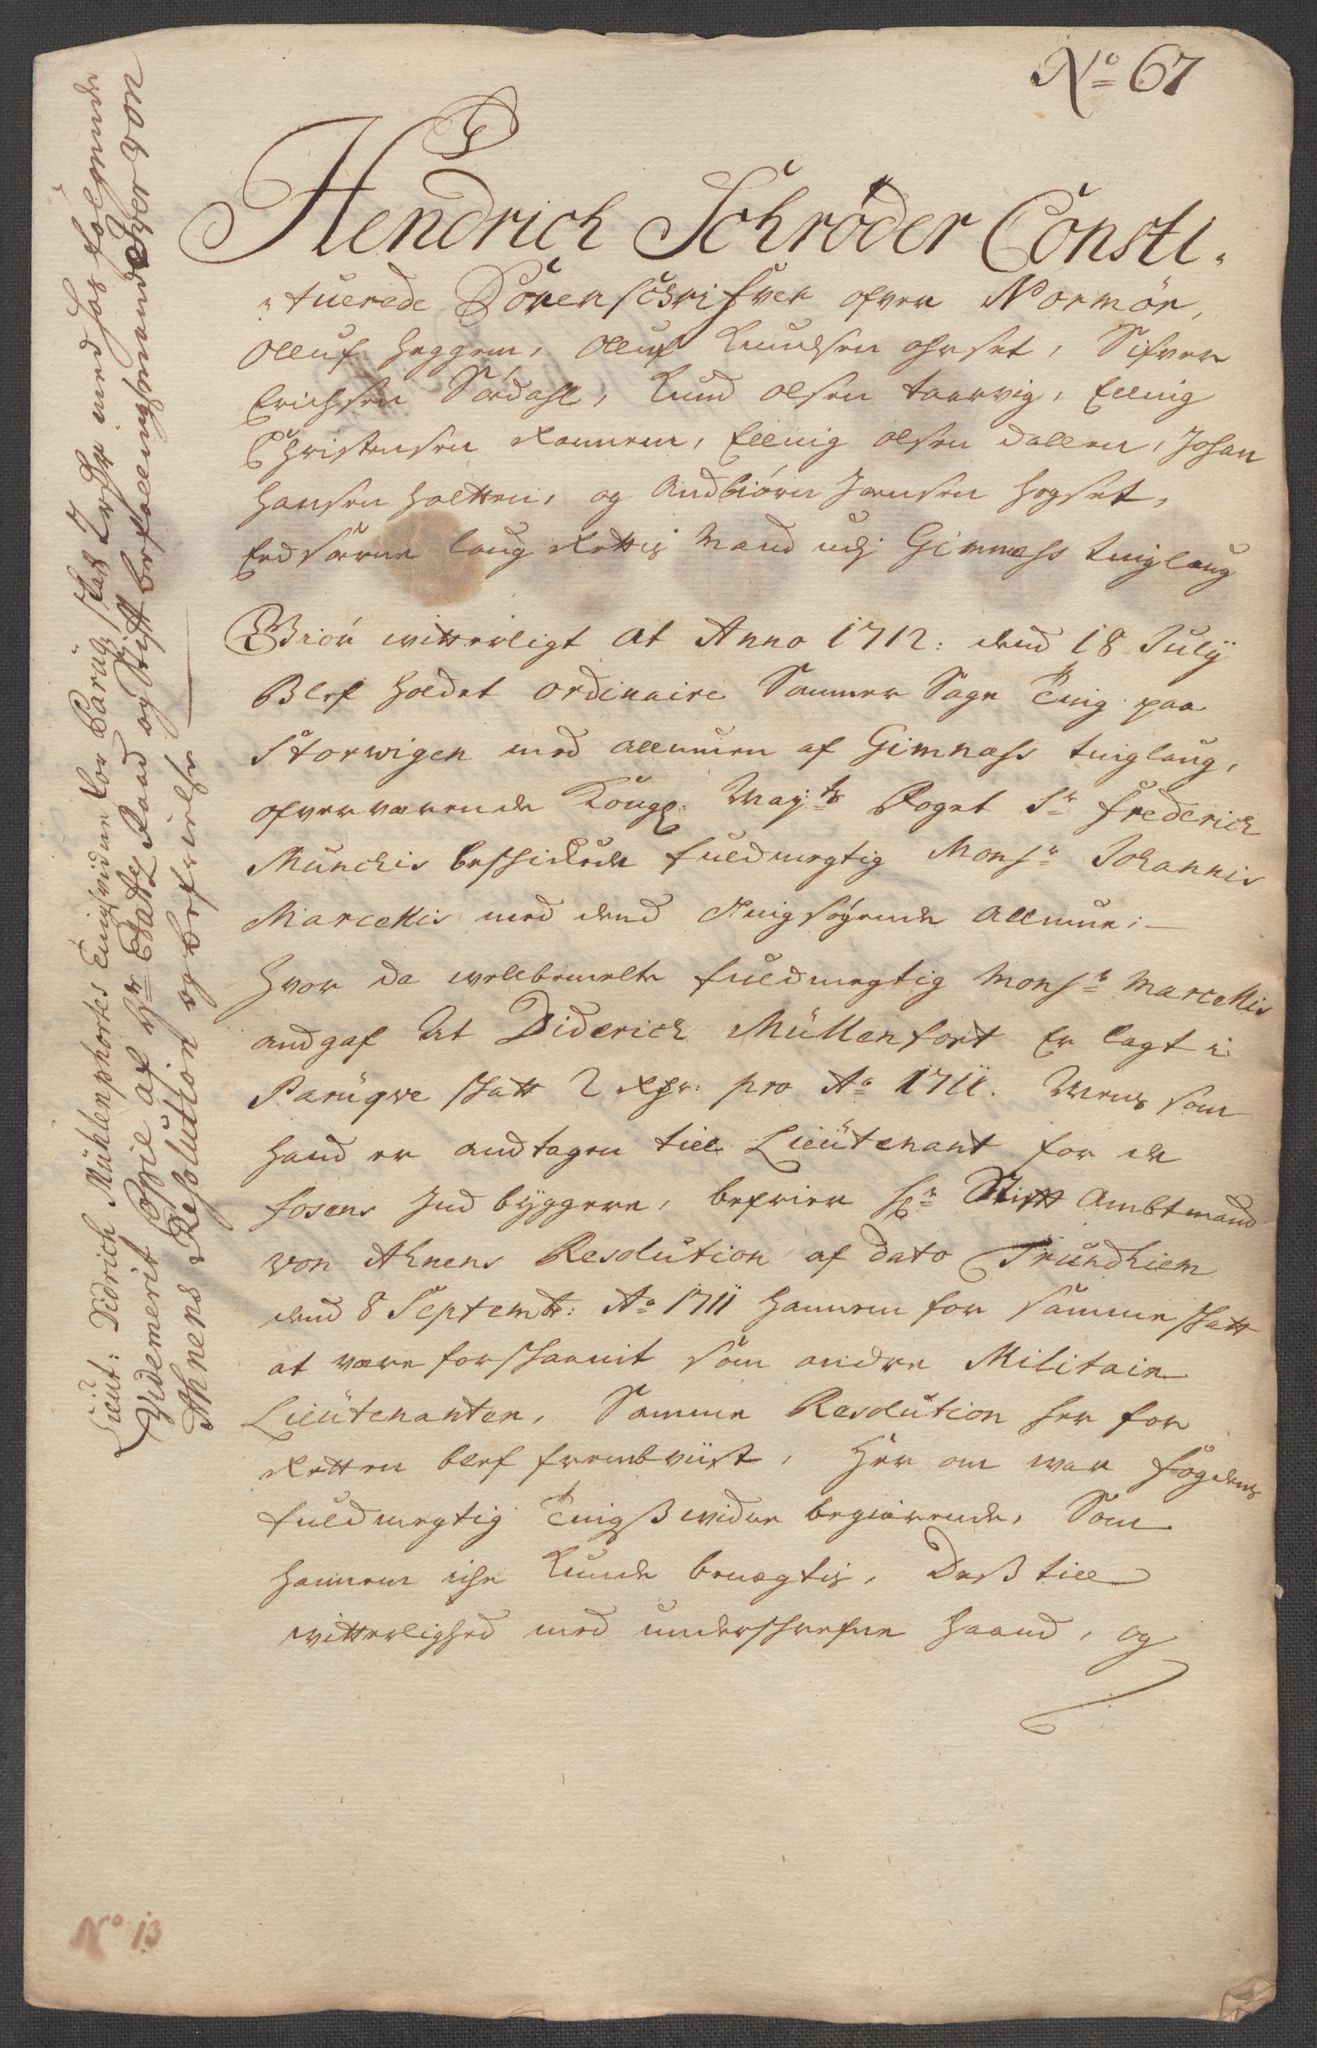 No 67
Hendrich Schrøder Consti-
-tuerede Sorenschrifver ofver Normør,
Olluf Heggem, Olluf Knudsen ohrset, Sifver
Erichsen Sørdahl, Knud Olsen taarvig, Elling
Christensen Rannem, Elling Olsen Dallen, Johan
Hansen Holtten, og Andbiørn Jonsen Hogset,
Eedsorne laug Rettis Mænd udj Gimness tinglaug
Giør witterligt at Anno 1712: dend 18 Julij
Blef holdet ordinaire Sommer Sage Ting paa
Storwigen med allmuen af Gimness tinglaug,
ofverværende Kongl: Mayts Foget Sr Frederich
Munchis beschickede fuldmegtig Monsr Johannis
Marcellis med dend tingsøgende Allmue;
Hvor da welbemelte fuldmegtig Monsr Marcellis
andgaf At Diderich Müllenfort Er lagt i
Paruqve skatt 2 Rdr: pro Ao 1711. Mens som
hand er andtagen till Lieutenant for de
fosens Indbyggere, befrier Hr Stifft Ambtmand
von Ahnens Resolution af dato Trundhiem
dend 8 Septembr: Ao 1711 hannem for samme skatt
at være forskaanit som andre Militair
Lieutenanter, Samme Resolution her for
Retten blef frembviist, Her om war fogdens
fuldmegtig Tingsswidne begierende, Som
hannem iche Kunde benegtis, Dess till
witterlighed med underschrefne Haand, og
Lieut: Didrich Mühlenphortes Tingsvidne for Paruq skat Frihed med hos følgende
Videmerit Copie af Hr Etatz Raad og Stifft befallingsmand Iver von
Ahnens Resolution og befrielse
No 13